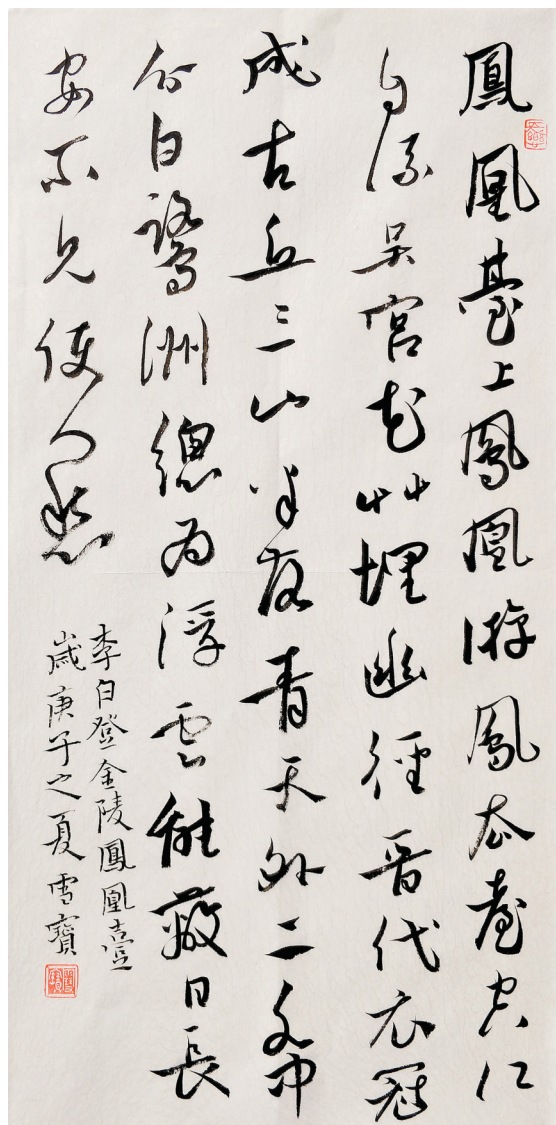 鳳凰臺上鳳凰游鳳去臺空江
自流吳宮花艸埋幽徑晉代衣冠
成古丘三山半落青天外二水中
分白鷺洲總為浮雲能蔽日長
安不見使人愁
李白登金陵鳳凰臺
歲庚子之夏雪寶